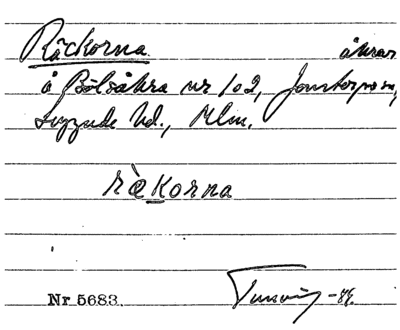 Räckorna åkrar
å Bölsåkra nr 102, Jonstorps sn,
Luggude hd., Mlm.
ràkorna
Nr 5683. -44.